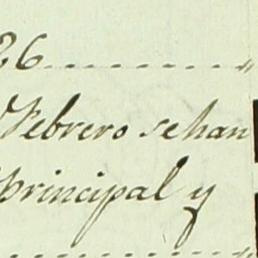 26
Febrero sehan
principal y